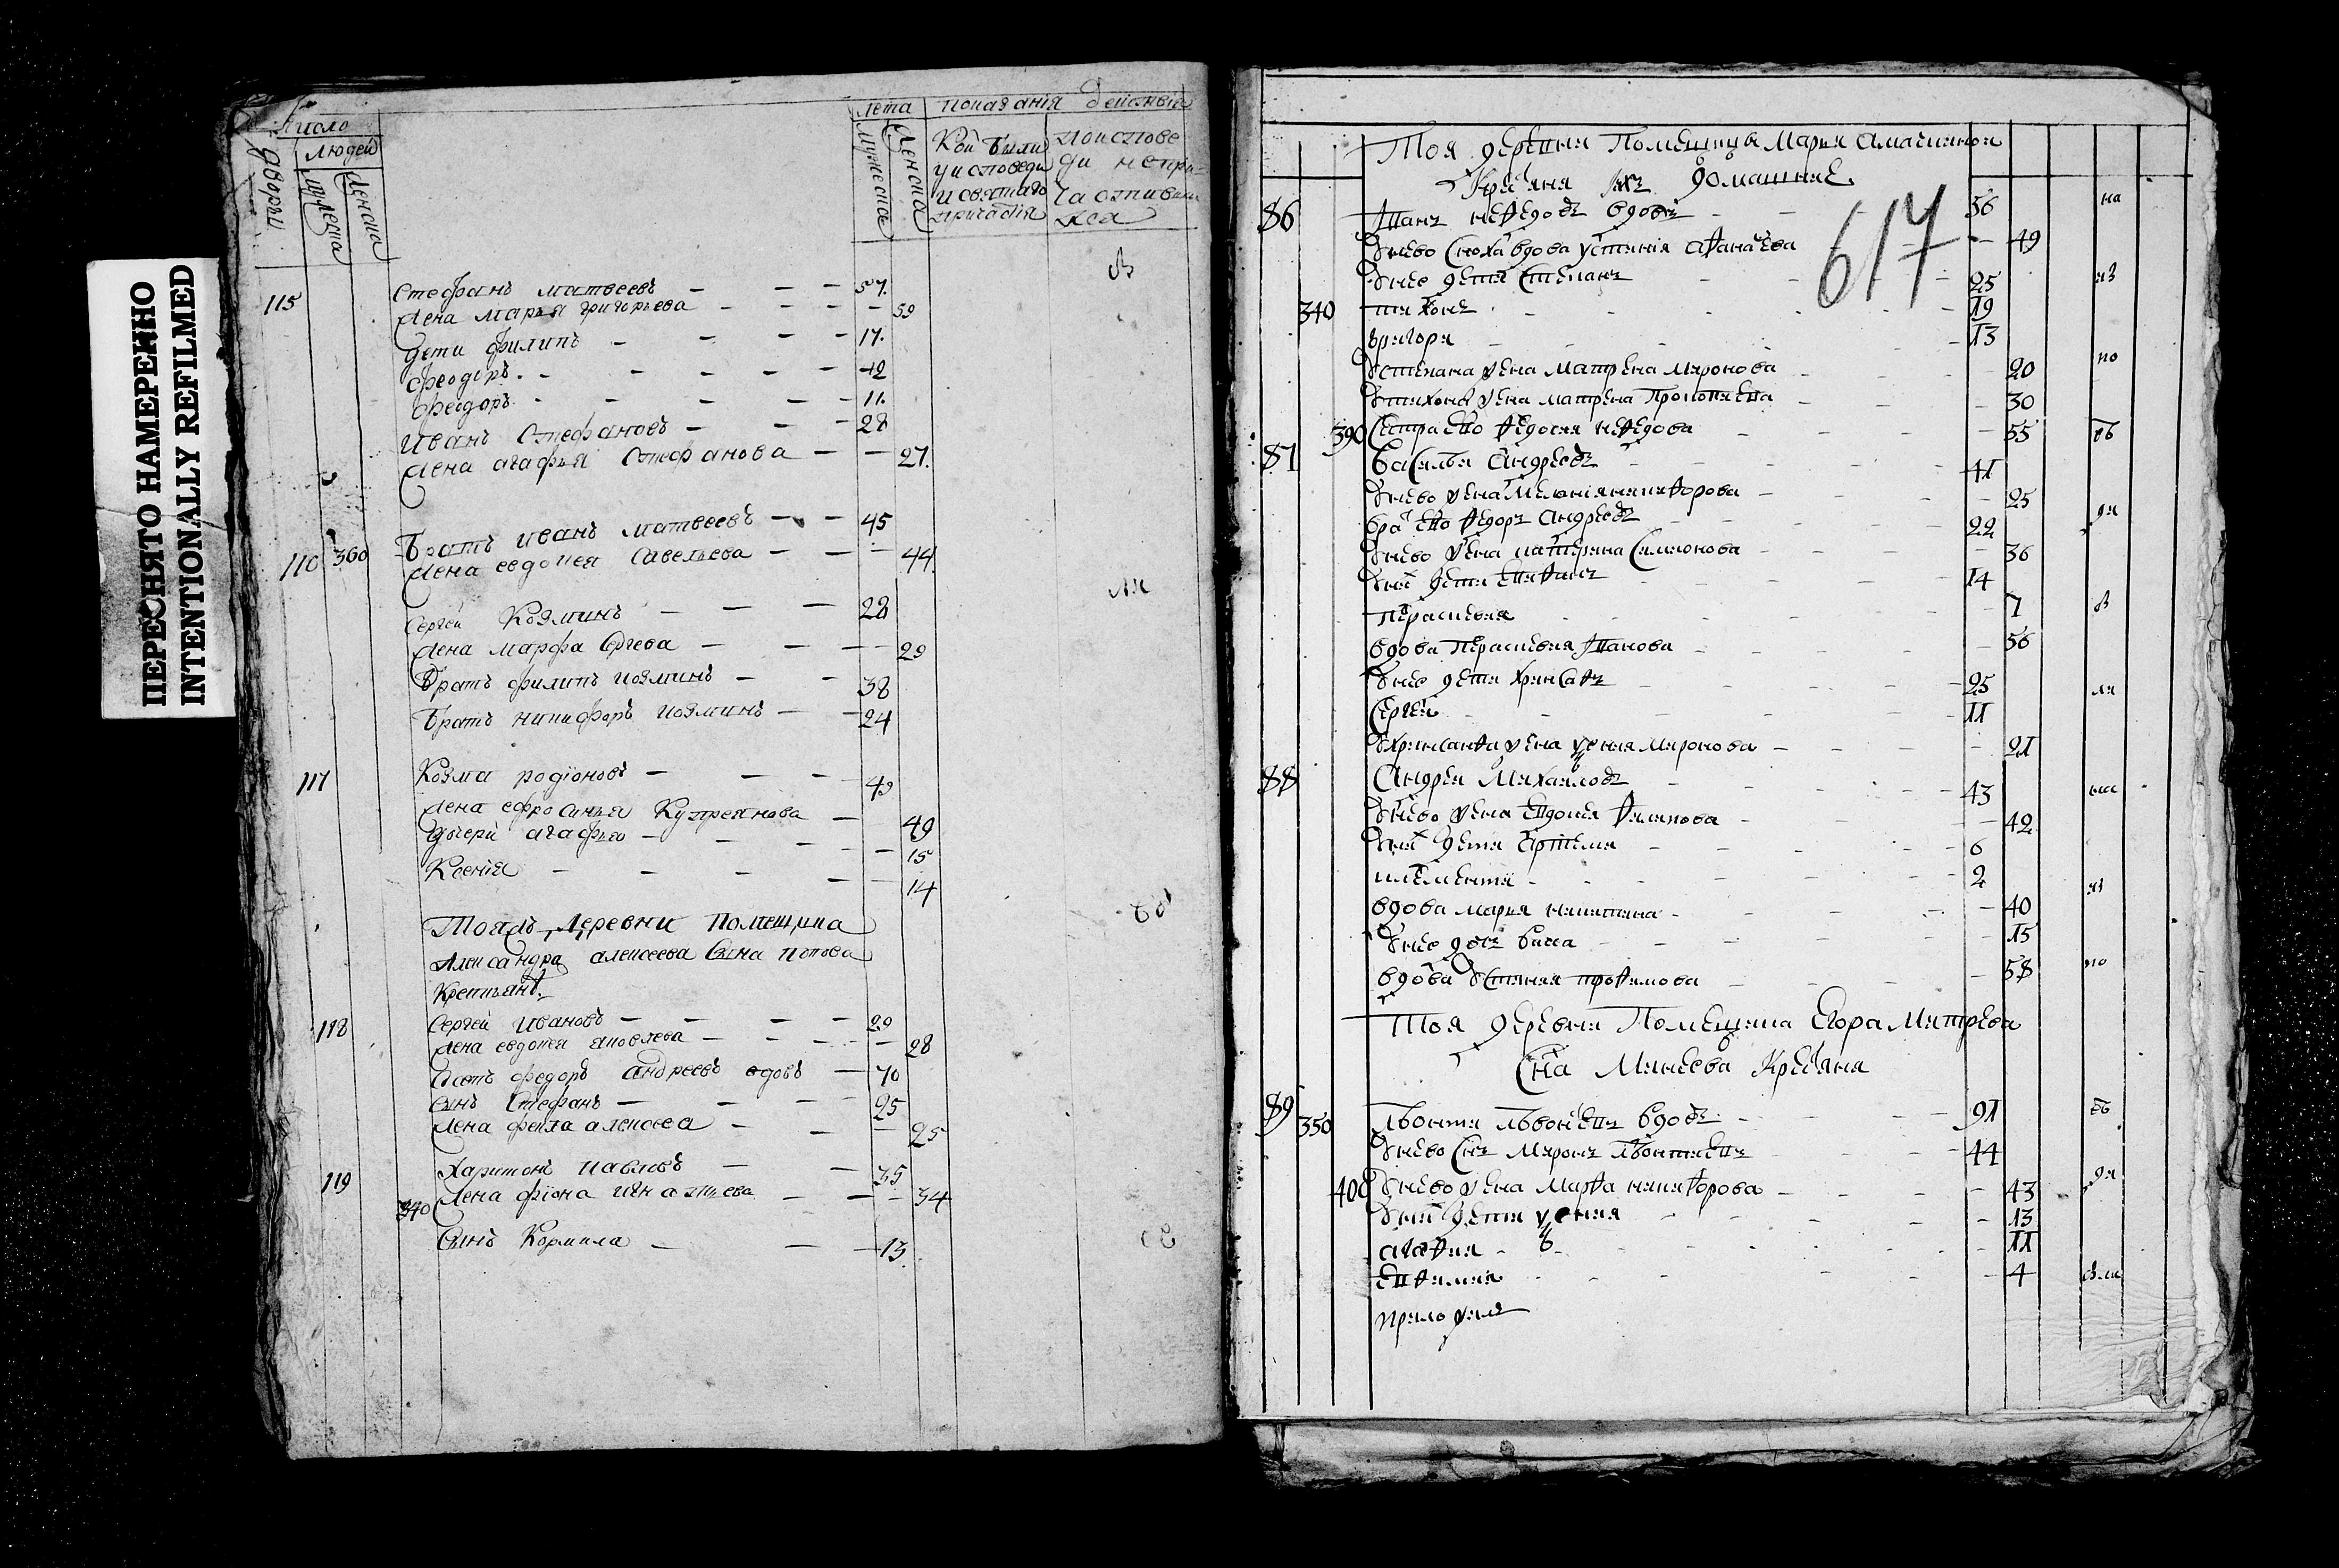 ПЕРЕСНЯТО НАМЕРЕННО
INTENTIONALLY REFILMED
Число
Дворы
Людей
Мужеска
Женска
Лета
Мужеска
Женска
Показания Действия
Кои были
у исповеди
и святаго
причастия
по испове
ди не при
частивши
хся
115 Стефанъ матвеевъ 57.
Жена марья григорьева 59
Дети филипъ 17.
феодоръ 12
феодоръ 11.
Иванъ Стефановъ 28
Жена агафья Стефанова 27.
116 360 Братъ иванъ матвеевъ 45
Жена евдокея Савельева 44
Сергей Козминъ 28
Жена марфа Сргева 29
Братъ филипъ козминъ 38
Братъ никифоръ козминъ 24
117 Козма родионовъ 49
Жена ефросинья Купреянова 49
Дочери агафья 15
Ксения 14
Тояжъ Деревни Помещика
Александра алексеева Сына попова
Крестьянъ.
118 Сергей Ивановъ 29
Жена евдокея яковлева 28
федоръ андреевъ вдовъ 70
Сынъ Стефанъ 25
Жена фекла алексеева 25
119 Харитонъ павловъ 35
340 Жена фиона игнатьева 34
Сынъ Кормила 13.
617
Тоя деревня Помещицы Марья
Крестьяня ихъ домашние
86 Иванъ нефедовъ вдовъ 56
Унево Сноха вдова устиния афанасева 49
Унее дети Степанъ 25
340 тихонъ 19
григори 13
Устепана жена Матрена Миронова 20
Утихона жена матрена Прокопиева 30
390 Сестра ево федосия нефедова 55
87 Василеи Андреевъ 41
Унево жена Мелания никифорова 25
братъ ево федоръ Андреевъ 22
Унево жена катерина Симионова 36
Унихъ дети 14
Прасковия 7
вдова Прасковия Иванова 56
Унее дети Хрисанфъ 25
Сергеи 11
Ухрисанфа жена Миронова 21
88 Андреи Михаиловъ 43
Унево жена Евдокея филипова 42
Унихъ дети Артеми 6
климентии 2
вдова мария никитина 40
Унее дочь васа 15
вдова Устиния трофимова 58
Тоя деревня Помещика Егора Митрева
Сна Минеева Крестьяня
89 350 Леонтии Леонтиевъ вдовъ 91
Унево Снъ Миронъ Леонтиевъ 44
400 Унево жена Марфа никифорова 43
Унихъ дети 13
агафия 11
Евфимия 4
приложилъ